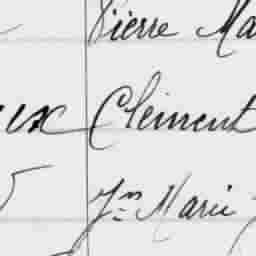 Pierre Ma
ux Clément
Jn Marie